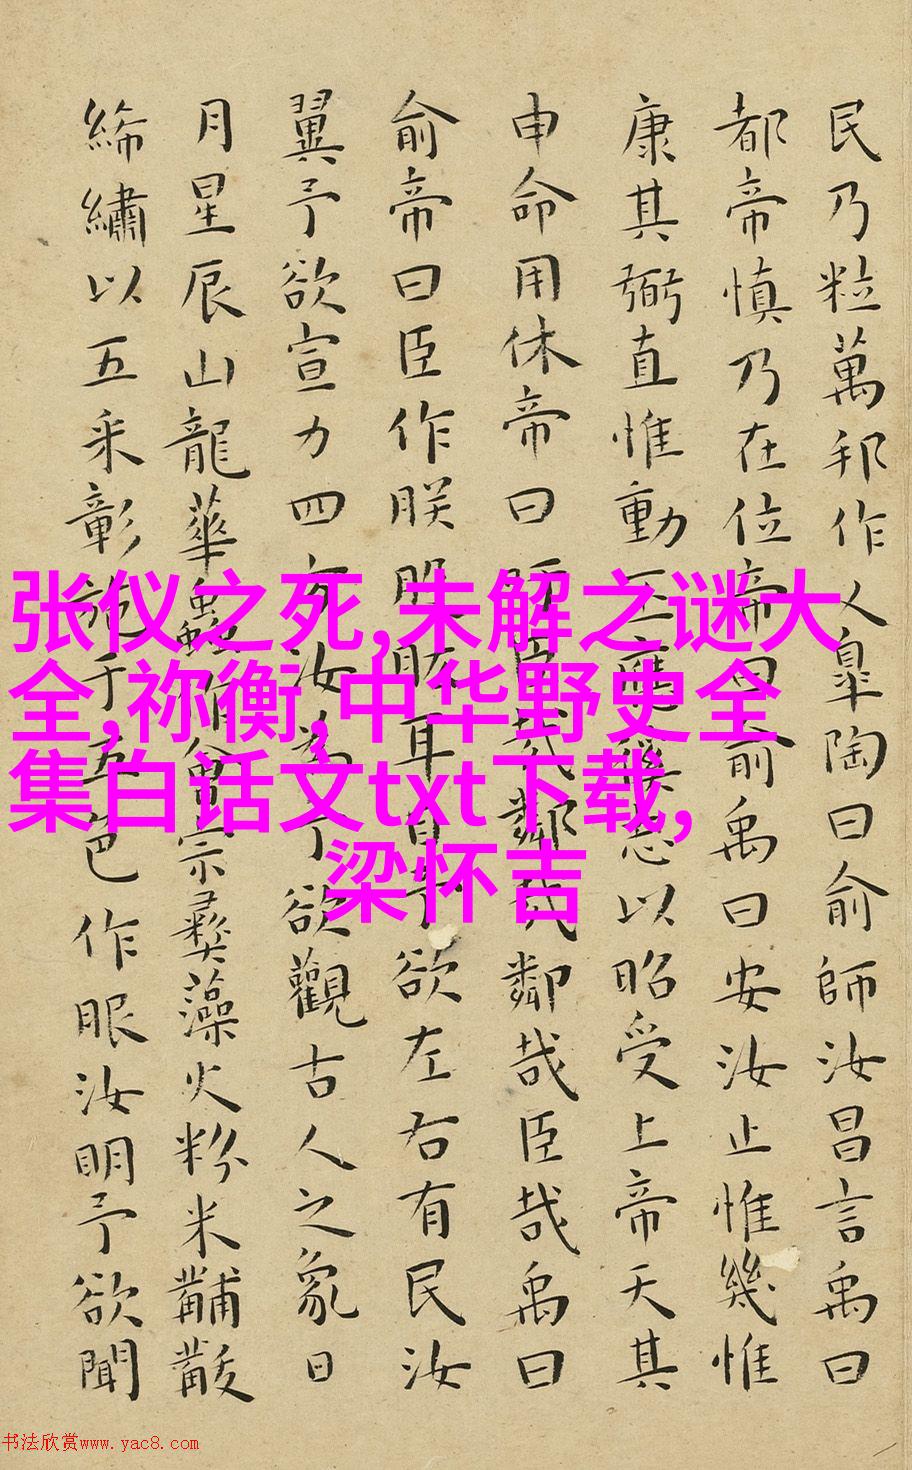 民乃粒萬邦作乂皐陶曰俞師汝昌言禹曰
都帝慎乃在位帝曰俞禹曰安汝止惟幾惟
康其弼直惟動丕應徯志以昭受上帝天其
申命用休帝曰臣哉鄰哉鄰哉臣哉禹曰
俞帝曰臣作朕股肱耳目予欲左右有民汝
翼予欲宣力四方汝為予欲觀古人之象日
月星辰山龍華蟲作會宗彝藻火粉米黼黻
絺繡以五采彰施于五色作服汝明予欲聞
张仪之死,未解之谜大
全,祢衡,中华野史全
集白话文txt下载,
梁怀吉
书法欣赏www.yac8.com